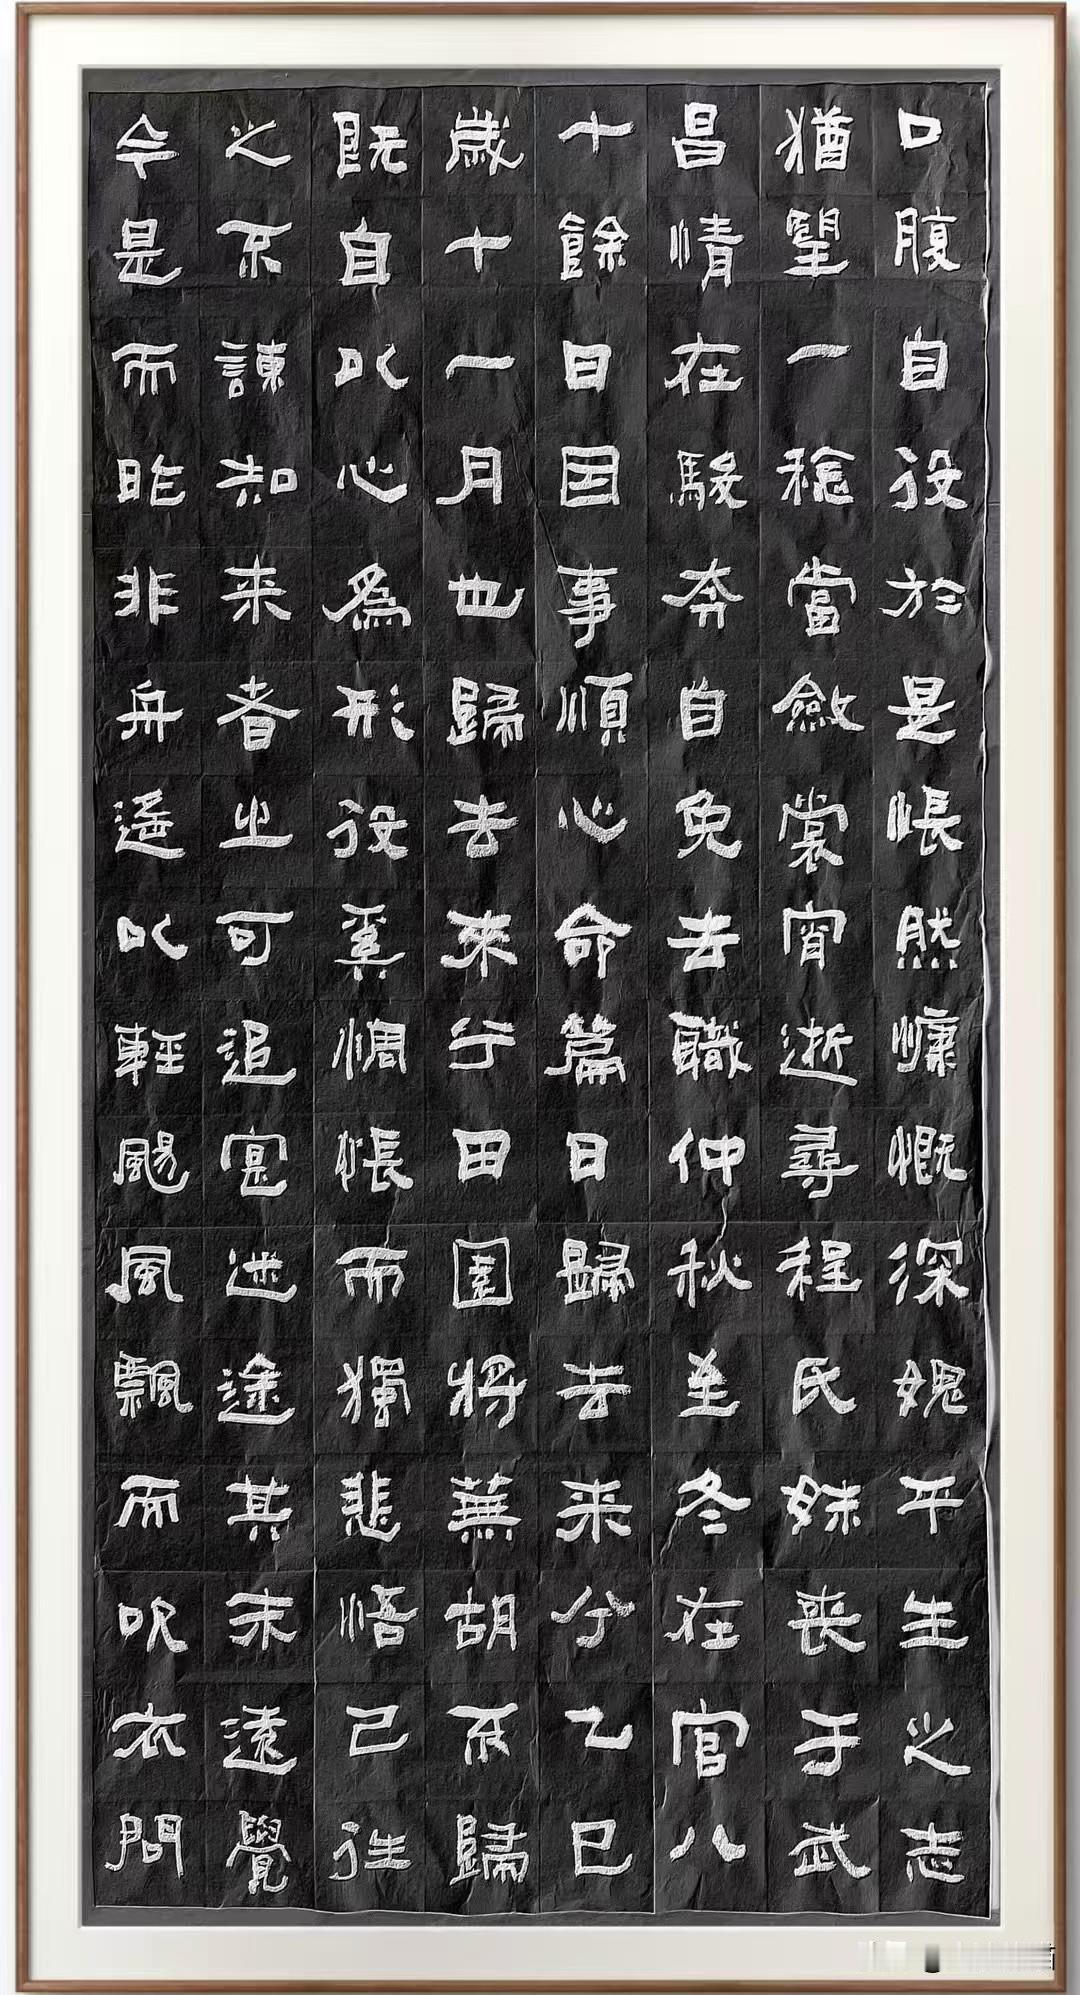 口腹自役於是悵然慷慨深媿平生之志
猶望一稔當斂裳宵逝尋程氏妹喪于武
昌情在駿奔自免去職仲秋至冬在官八
十餘日因事順心命篇曰歸去来兮乙巳
歲十一月也歸去來兮田園將蕪胡不歸
既自以心為形役奚惆悵而獨悲悟已往
之不諫知来者之可追寔迷途其未遠覺
今是而昨非舟遙以輕颺風飄而吹衣問